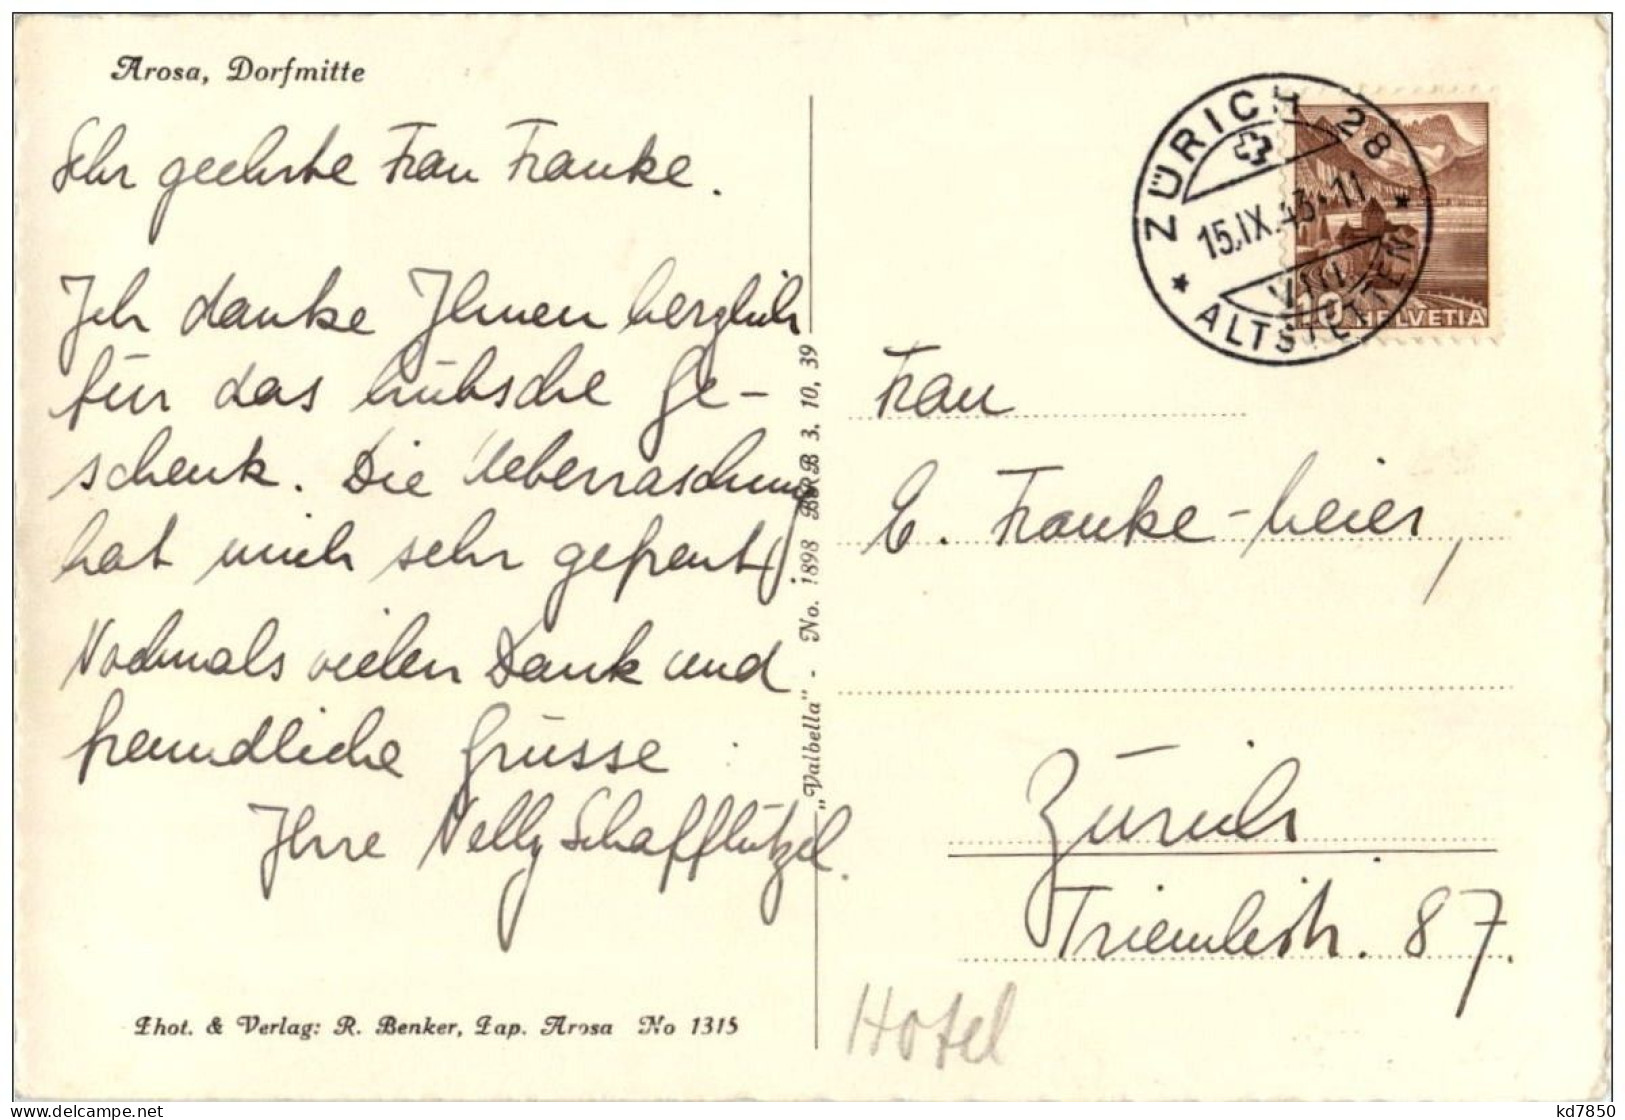 Arosa, Dorfmitte
Sehr geehrte Frau Franke.
Ich danke Ihnen herzlich
für das hübsche Ge-
schenk. Die Ueberraschung
hat mich sehr gefreut.
Nochmals vielen Dank und
freundliche Grüsse
Ihre Nelly Schafflützel.
Phot. & Verlag: R. Benker, Pap. Arosa No 1315
„Valbella" - No. 1898 BRB 3. 10. 39
ZÜRICH 28
15.IX.43-11
VIII
ALTSTETTEN
10 HELVETIA
Frau
E. Franke-Meier,
Zürich
Triemlistr. 87.
Hotel
kd7850